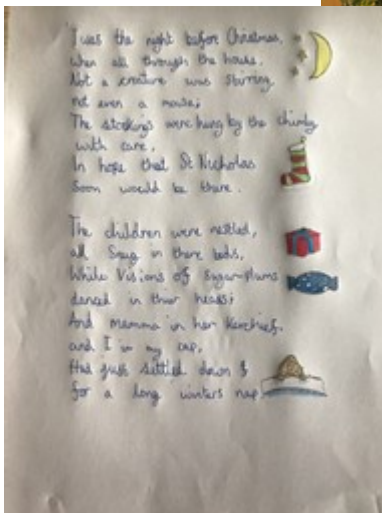 'Twas the night before Christmas,
when all through the house,
Not a creature was stirring
not even a mouse;
The stockings were hung by the chimly
with care,
In hope that St Nicholas
Soon would be there.
The children were nestled,
all Snug in there beds,
While Visions of Sugar-Plums
danced in thier heads;
And mamma in her Kerchief,
and I in my cap,
Had just settled down
for a long winters nap.